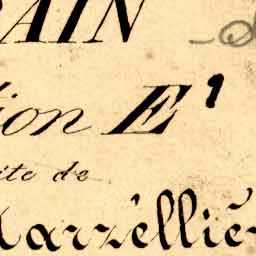 AIN
ion E¹
ite de
arzèlliè